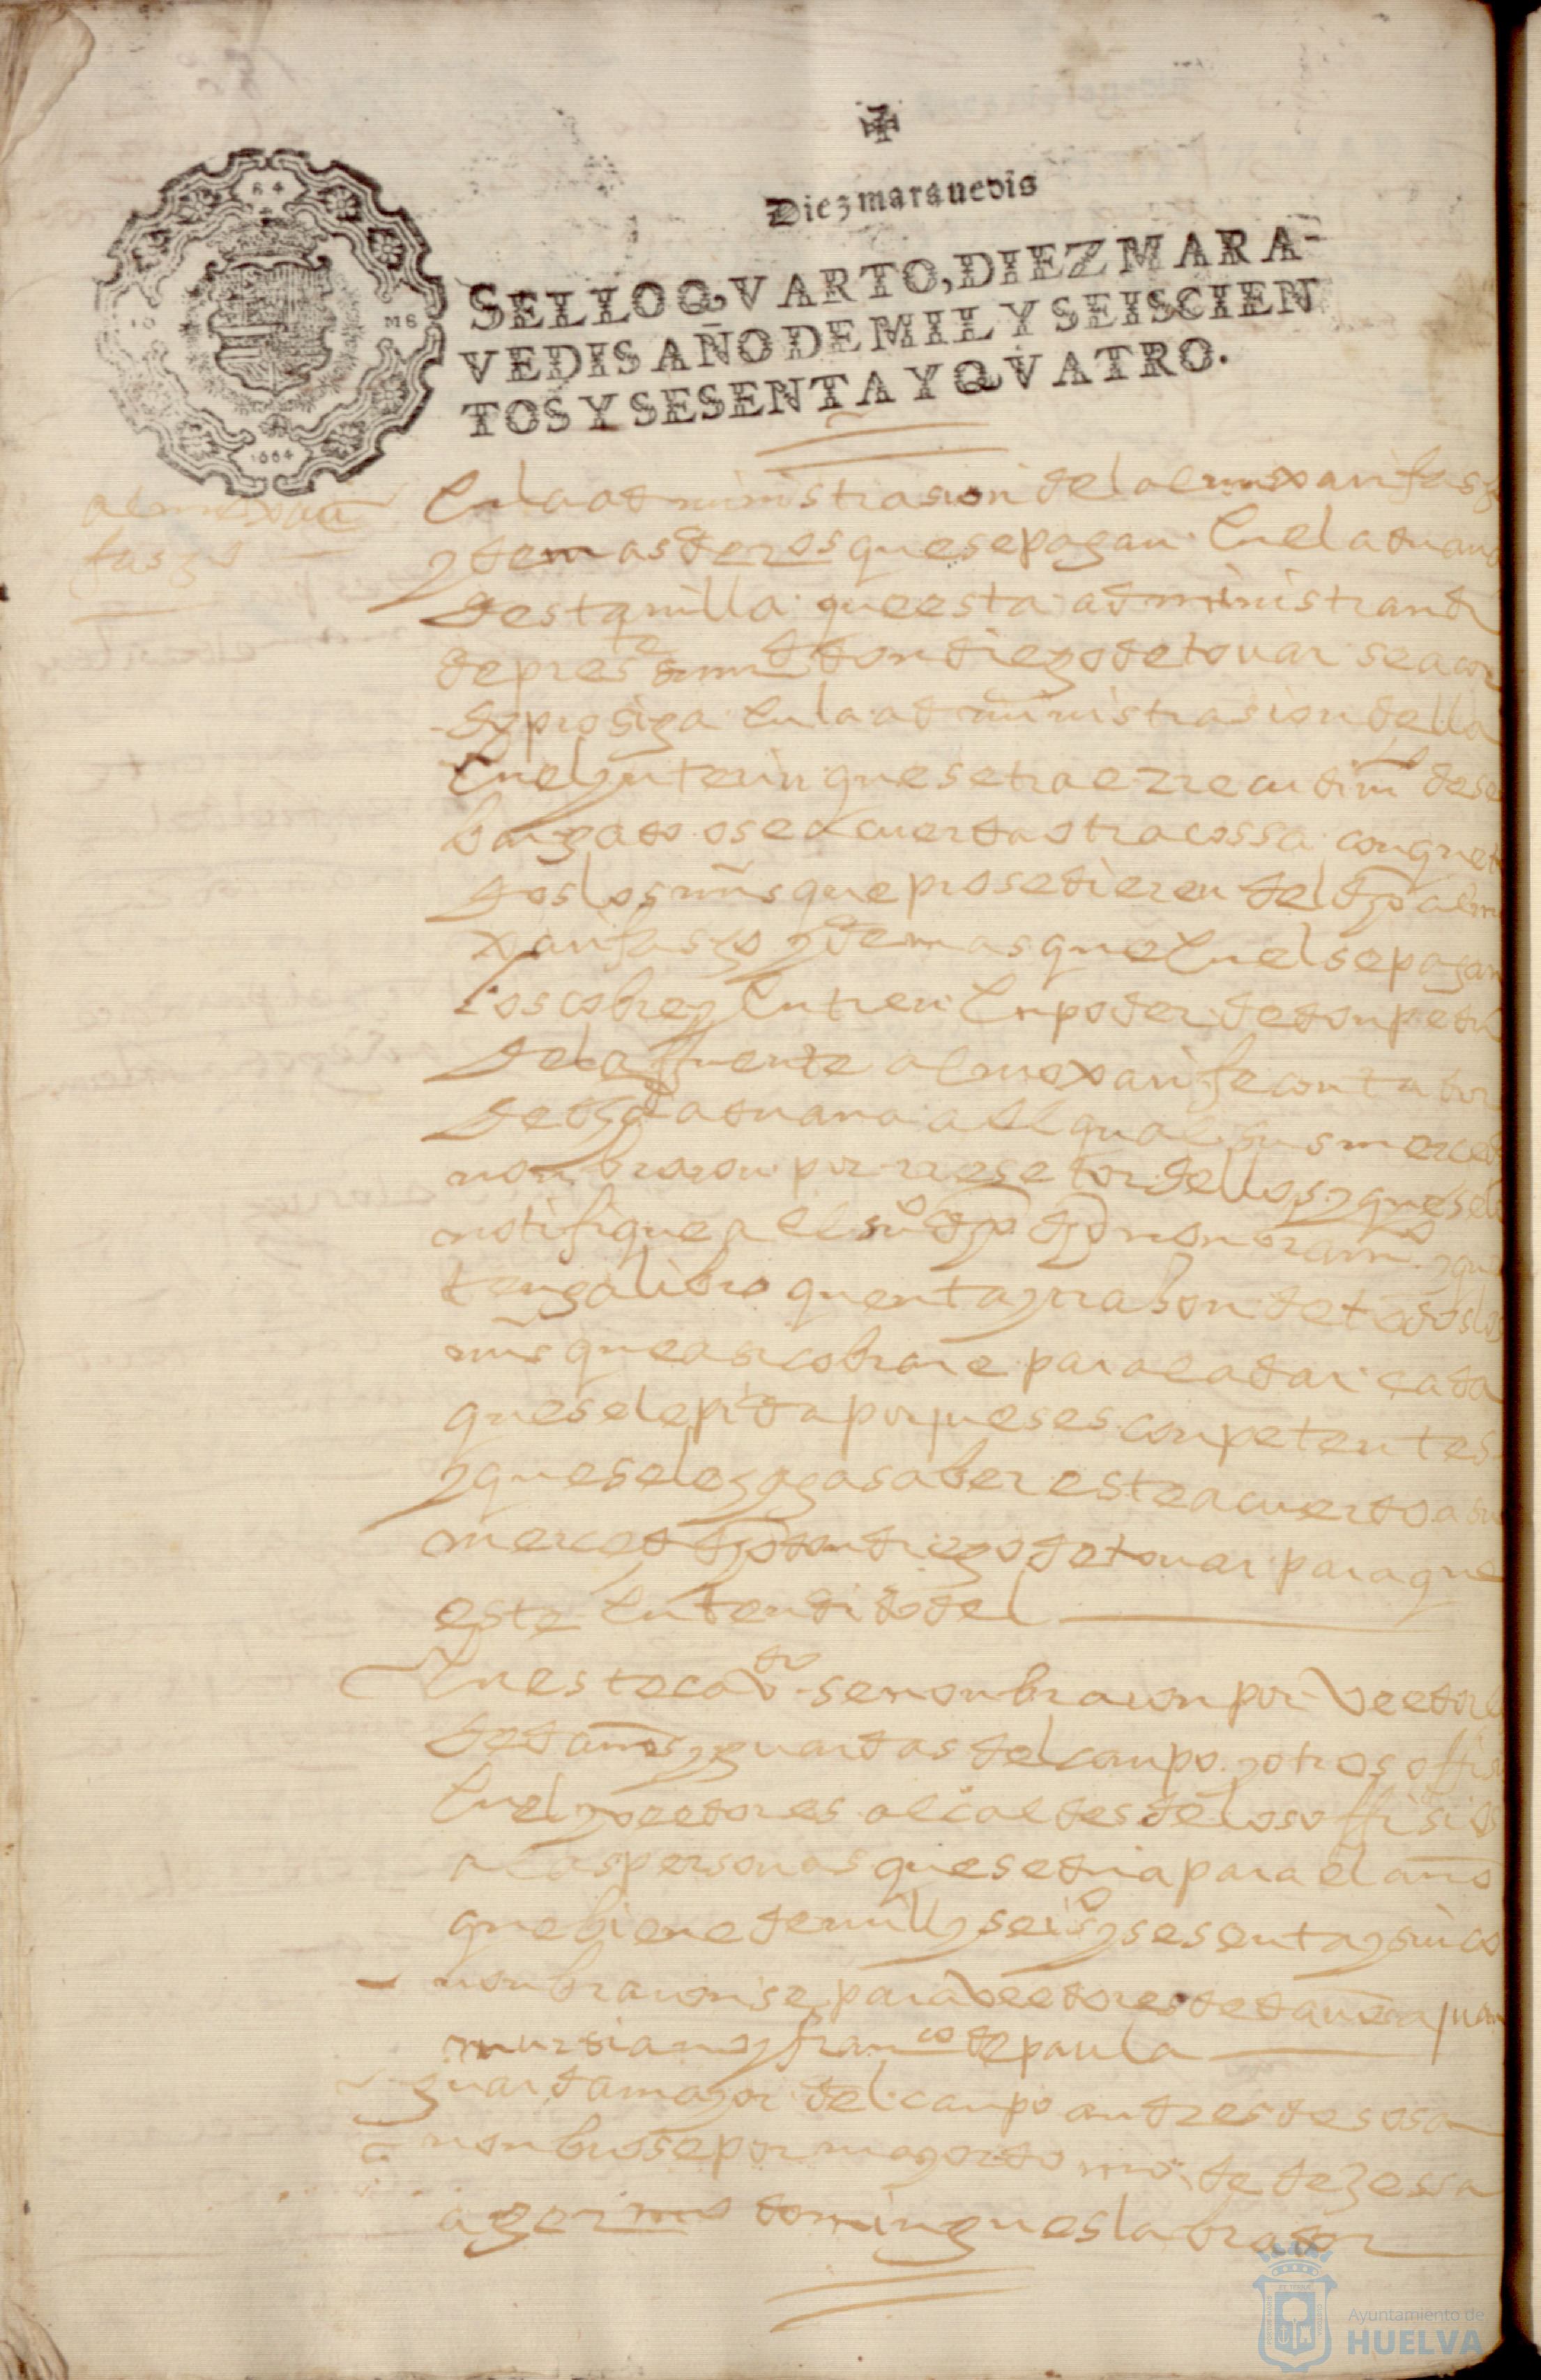 Diez marauedis
SELLO QVARTO, DIEZ MARA-
VEDIS AÑO DE MIL Y SEISCIEN
TOS Y SESENTA Y QVATRO.
64
1664
almoxari
fasgo
En la administrasion del almoxarifasg
y demas deros que se pagan En el aduana
desta villa que esta administrand
de presste don diego de touar se acor
do prosiga En la administrasion della
En el ynterin que se trae rrecudimto dese
bargado o se acuerda otra cossa con que to
dos los mrs que prosedieren del dho almo
xarifasgo y demas que En el se pagan
los cobre y Entren En poder de don pedro
de la fuente almoxarife contador
de dha aduana a el qual sus mercedes
nonbraron por rresetor dellos y que se le
notifique a el suso dho dho nonbramto y que
tenga libro quenta y rrason de todos los
mrs que asi cobrare para la dar cada
que se le pida por jueses conpetentes
y que se le haga saber este acuerdo a su
merced dho don diego de touar para que
este Entendido del
En este cavdo se nonbraron por veedores
de daños y guardas del canpo y otros offisi
En el y veedores alcaldes de los offisios
a las personas que se dira para el año
que biene de mill y seiso y sesenta y sinco
nonbraronse para veedores de daños a juan
mursiano y franco de paula
guarda mayor del canpo andres de sosa
nonbrose por mayordomo de dehessa
a germo domingues labrador
Ayuntamiento de
HUELVA